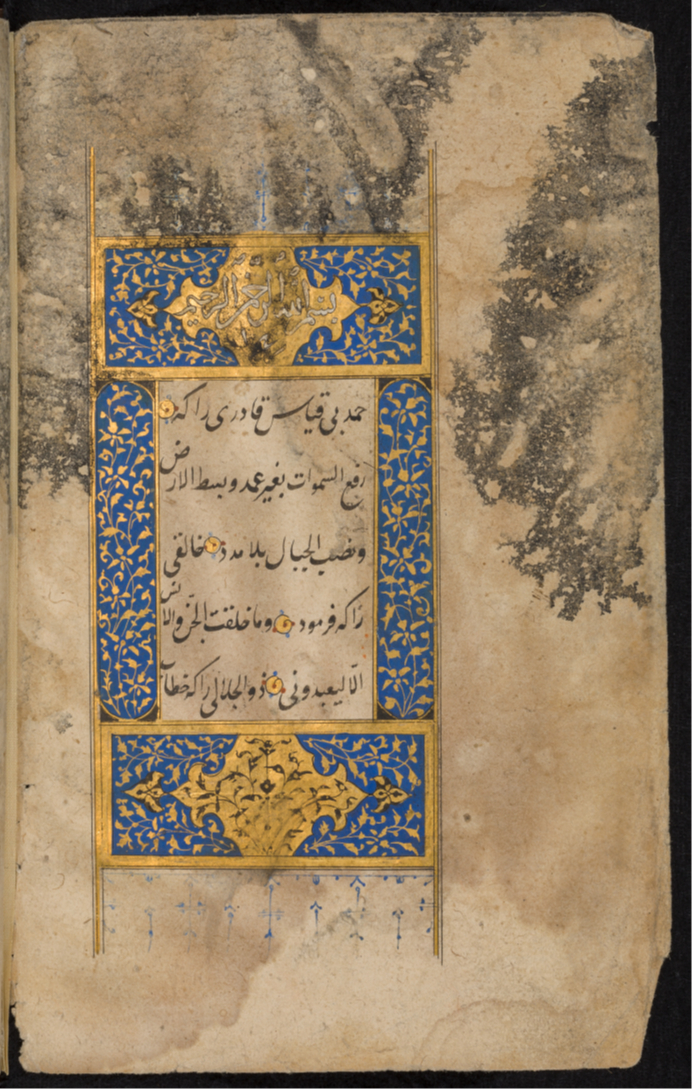 بسم الله الرحمن الرحيم
حمد بی قیاس قادری را که
رفع السموات بغیر عمد و بسط الارض
ونصب الجبال بلا مدد خالقی
را که فرمود وما خلقت الجن والانس
الّا لیعبدونی ذو الجلالی را که خطاب